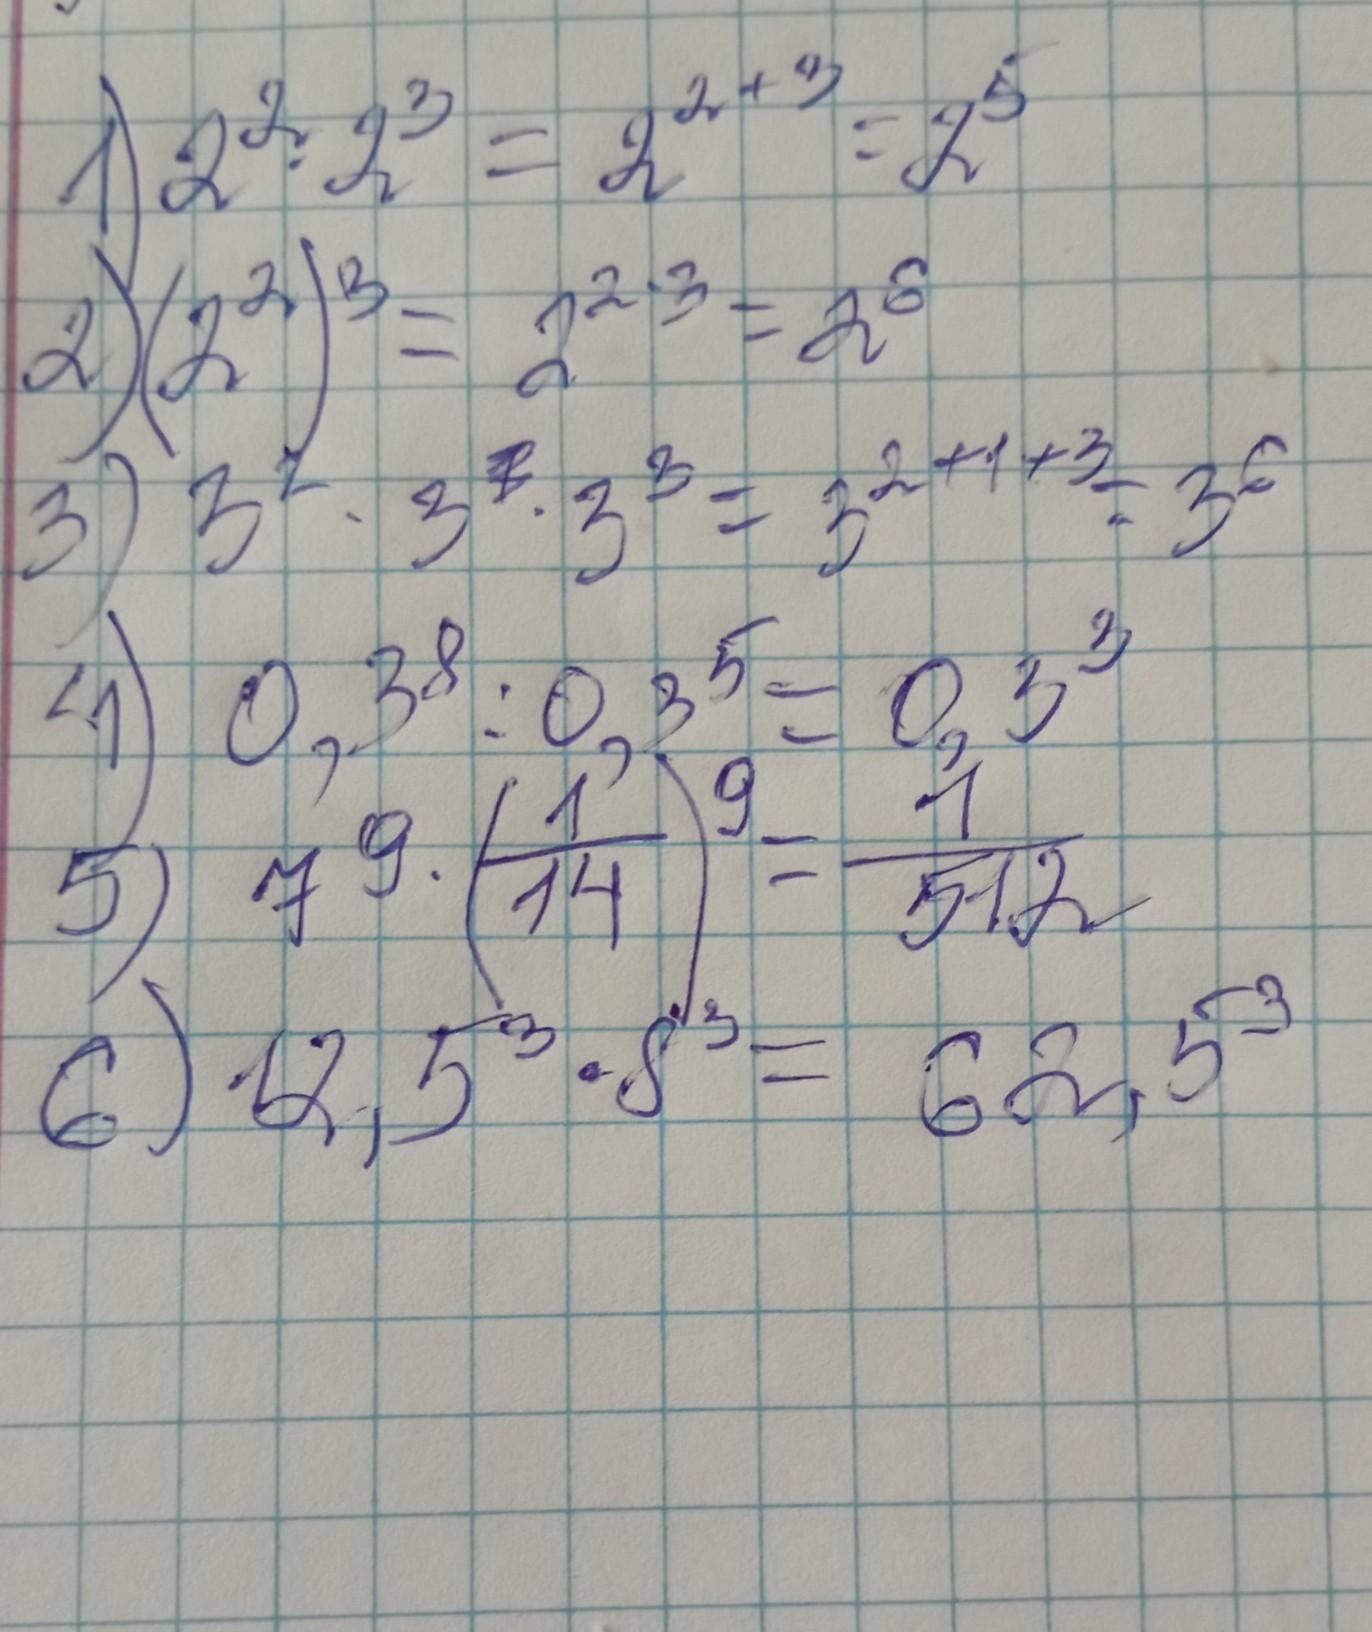 1) 2² · 2³ = 2²⁺³ = 2⁵
2) (2²)³ = 2²·³ = 2⁶
3) 3² · 3¹ · 3³ = 3²⁺¹⁺³ = 3⁶
4) 0,3⁸ : 0,3⁵ = 0,3³
5) 7⁹ · (1/14)⁹ = 1/512
6) 12,5³ · 8³ = 62,5³